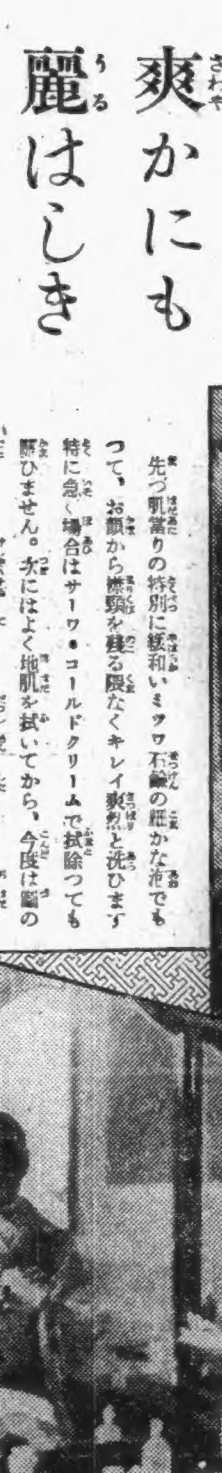 爽かにも
麗はしき
先づ肌當りの特別に緩和いミツワ石鹼の細かな泡でも
つて、お顔から襟頸を殘る隈なくキレイ爽然と洗ひます
特に急ぐ場合はサーワ・コールドクリームで拭除つても
ひません。次にはよく地肌を拭いてから、今度は の